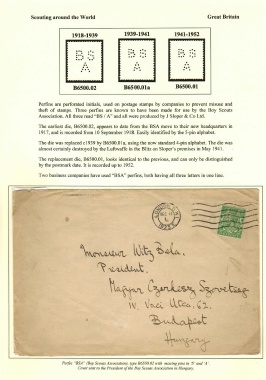 Scouting around the World
Great Britain
1918-1939
1939-1941
1941-1952
B S
A
B S
A
B S
A
B6500.02
B6500.01a
B6500.01
Perfins are perforated initials, used on postage stamps by companies to prevent misuse and
theft of stamps. Three perfins are known to have been made for use by the Boy Scouts
Association. All three read "BS / A" and all were produced by J Sloper & Co Ltd.
The earliest die, B6500.02, appears to date from the BSA move to their new headquarters in
1917, and is recorded from 10 September 1918. Easily identified by the 5-pin alphabet.
The die was replaced c1939 by B6500.01a, using the now standard 4-pin alphabet. The die was
almost certainly destroyed by the Luftwaffe in the Blitz on Sloper's premises in May 1941.
The replacement die, B6500.01, looks identical to the previous, and can only be distinguished
by the postmark date. It is recorded up to 1952.
Two business companies have used "BSA" perfins, both having all three letters in one line.
Monsieur Witz Bela.
President,
Magyar Cserkész Szövetség
IV. Vaci Utca, 62.
Budapest
Hungary
Perfin "BSA" (Boy Scouts Association), type B6500.02 with missing pins in 'S' and 'A'.
Cover sent to the President of the Boy Scouts Association in Hungary